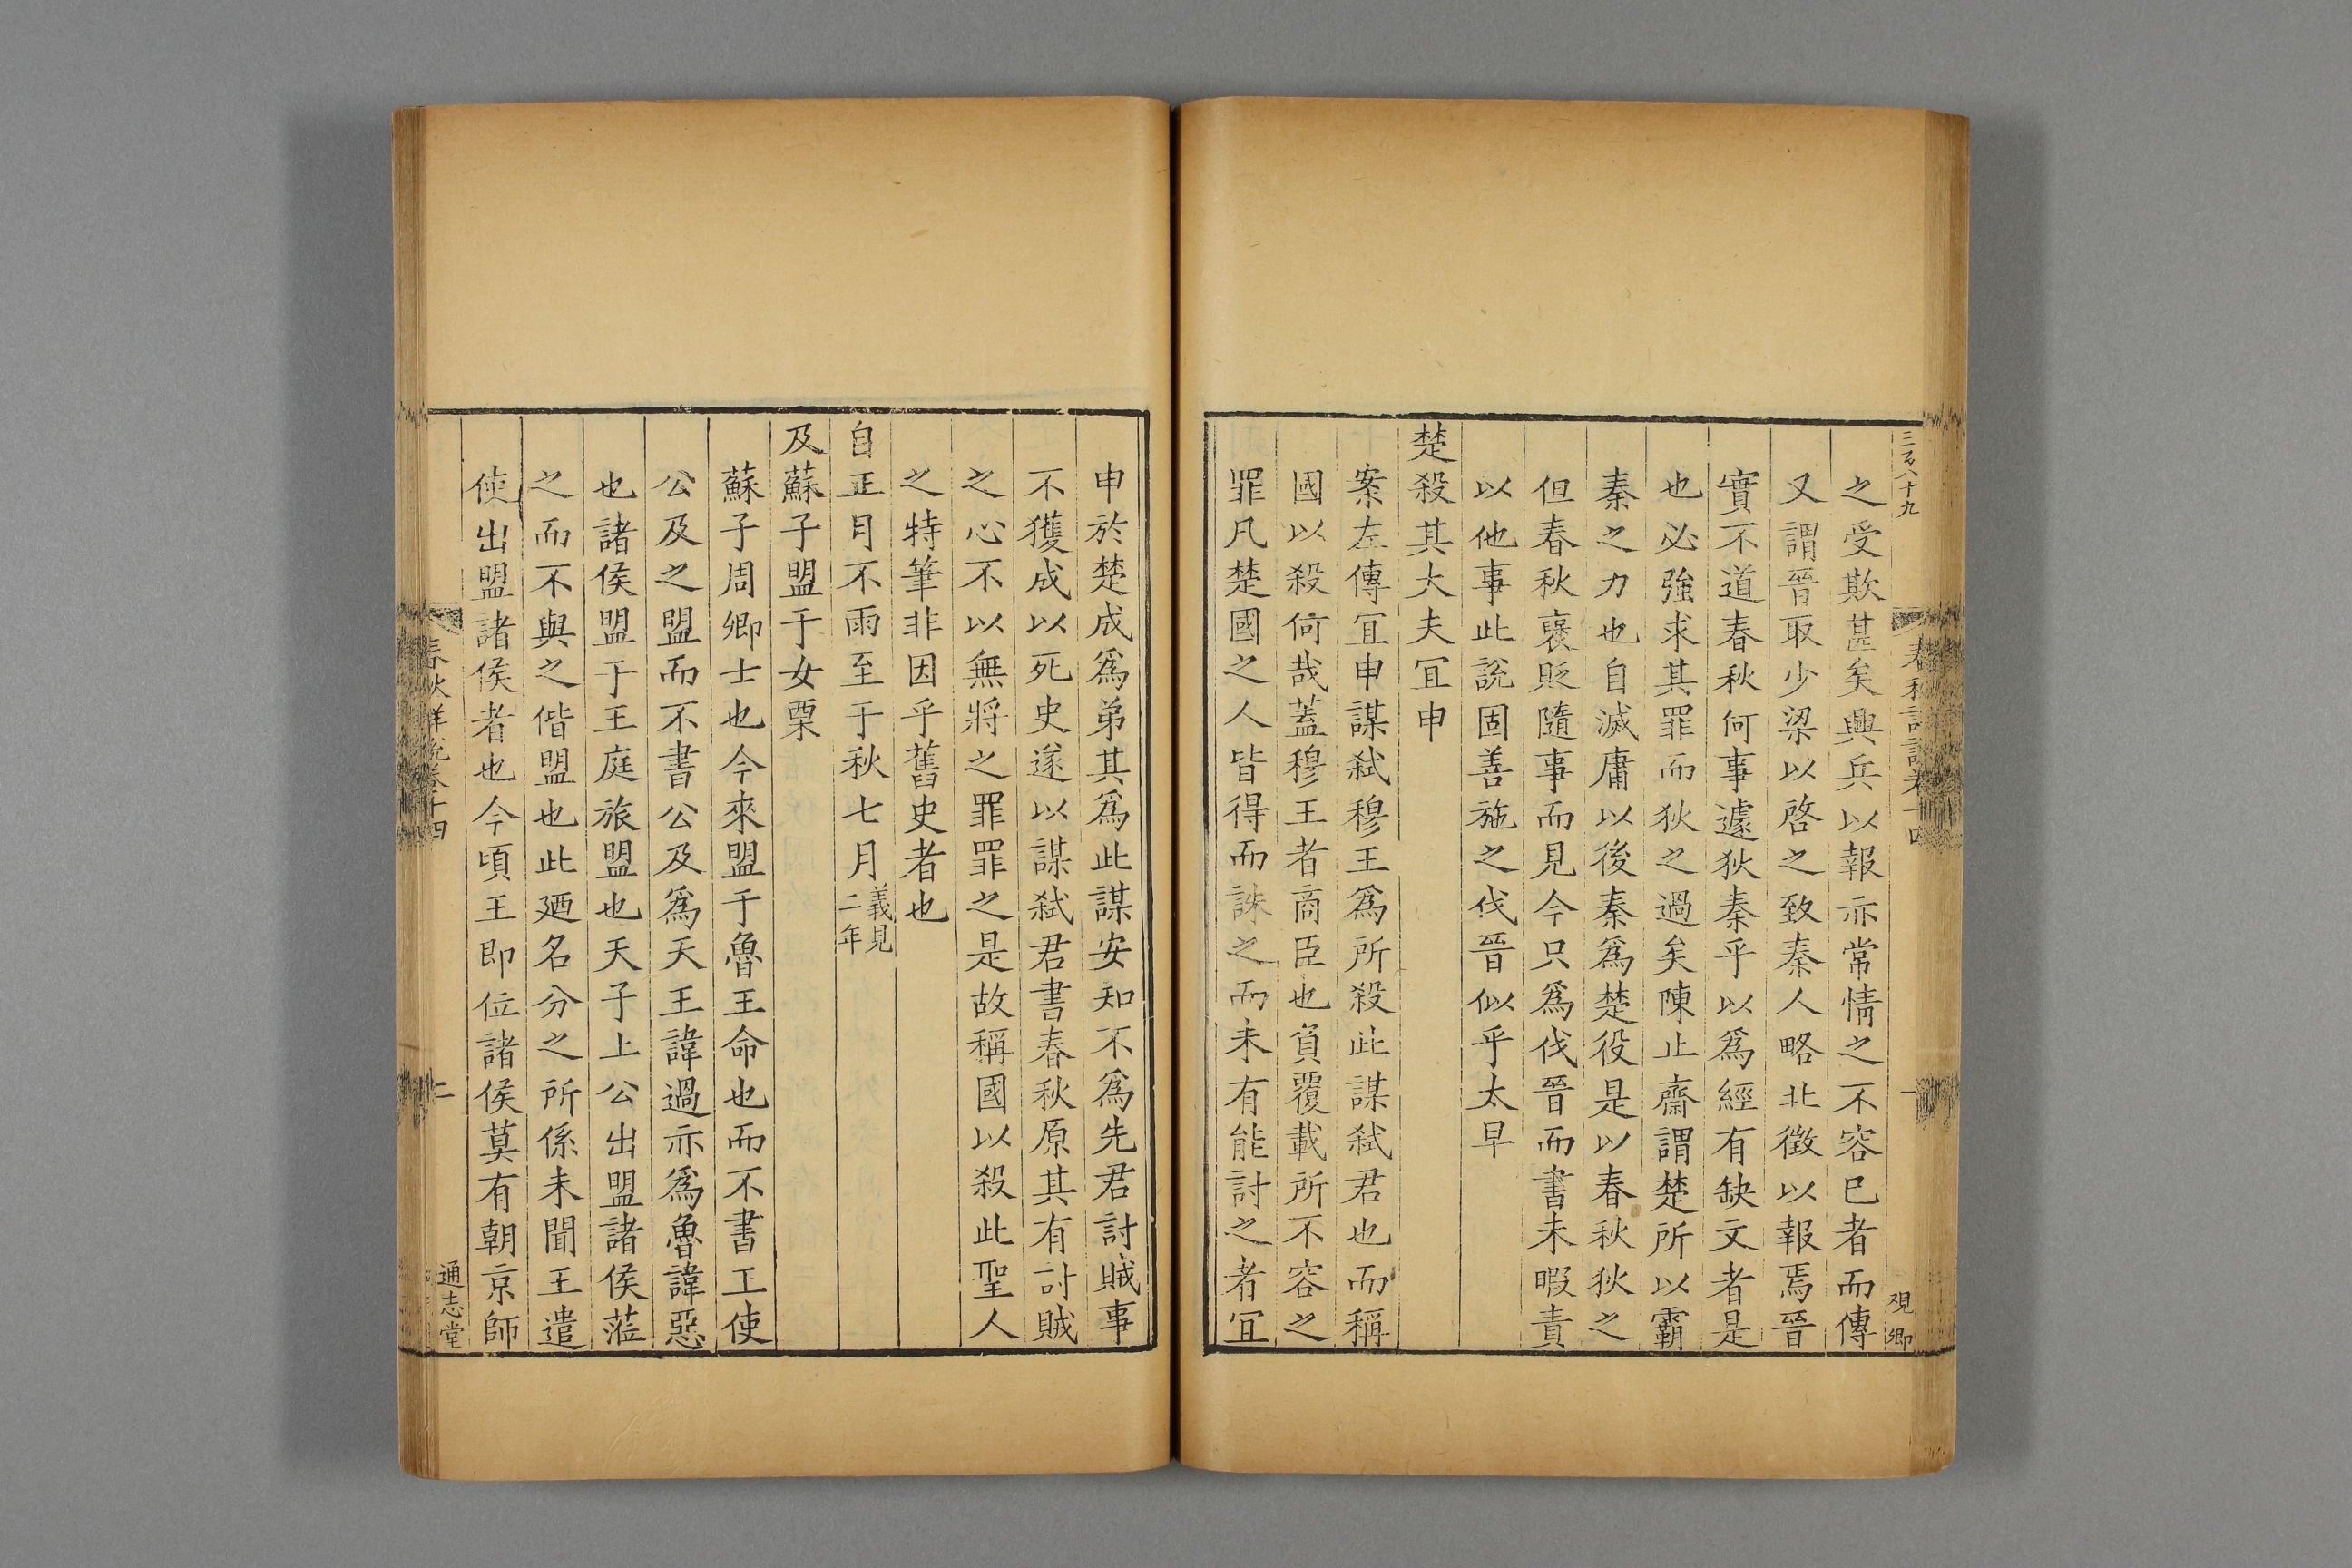 三百八十九
春秋詳說卷十四
一
覌卿
之受欺甚矣興兵以報亦常情之不容已者而傳
又謂晉取少梁以啓之致秦人略北徵以報焉晉
實不道春秋何事遽狄秦乎以爲經有缺文者是
也必強求其罪而狄之過矣陳止齋謂楚所以霸
秦之力也自滅庸以後秦爲楚役是以春秋狄之
但春秋襃貶隨事而見今只爲伐晉而書未暇責
以他事此說固善施之伐晉似乎太早
楚殺其大夫冝申
案左傳冝申謀弑穆王爲所殺此謀弑君也而稱
國以殺何哉蓋穆王者商臣也負覆載所不容之
罪凡楚國之人皆得而誅之而未有能討之者冝
申於楚成爲弟其爲此謀安知不爲先君討賊事
不獲成以死史遂以謀弑君書春秋原其有討賊
之心不以無將之罪罪之是故稱國以殺此聖人
之特筆非因乎舊史者也
自正月不雨至于秋七月義見二年
及蘇子盟于女栗
蘇子周卿士也今來盟于魯王命也而不書王使
公及之盟而不書公及爲天王諱過亦爲魯諱惡
也諸侯盟于王庭旅盟也天子上公出盟諸侯蒞
之而不與之偕盟也此廼名分之所係未聞王遣
使出盟諸侯者也今頃王即位諸侯莫有朝京師
春秋詳說卷十四
二
通志堂